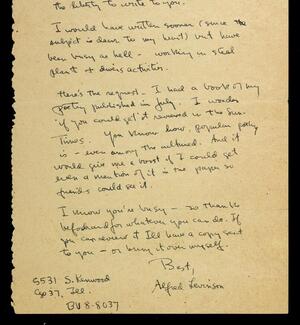 the liberty to write to you.
I would have written sooner (since the
subject is dear to my heart) but have
been busy as hell - working in steel
plant & divers activities.
Here's the request - I had a book of my
poetry published in July. I wonder
if you could get it reviewed in the Sun-
Times. You know how popular poetry
is - even among the cultured. And it
would give me a boost if I could get
even a mention of it in the paper so
friends could see it.
I know you're busy - so thanks
beforehand for whatever you can do. If
you can review it I'll have a copy sent
to you - or bring it over myself.
Best,
Alfred Levinson
5531 S. Kenwood
Cgo 37, Ill.
BU 8-8037